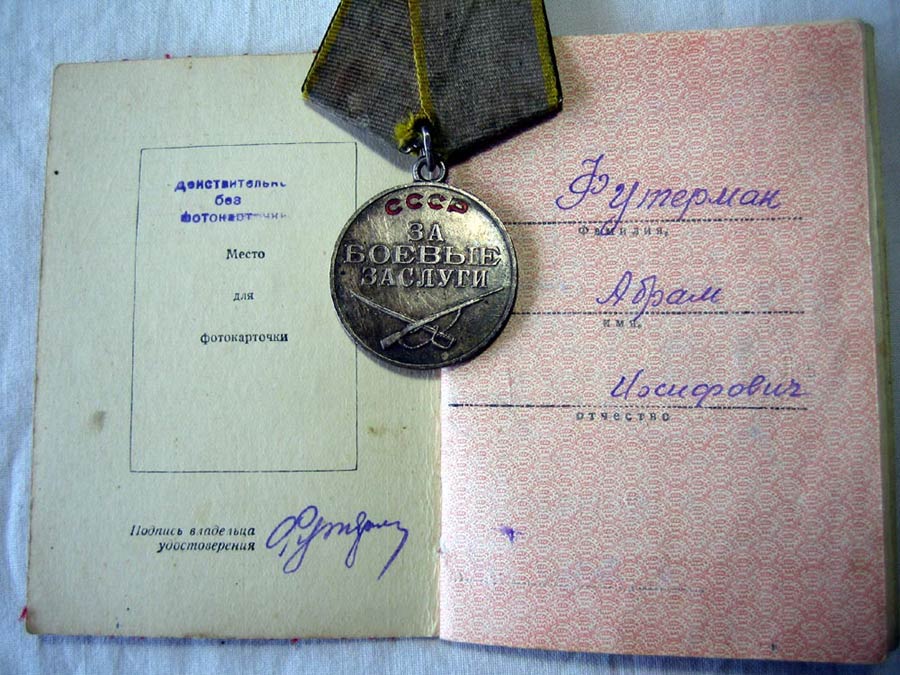 Действительно
без
фотокарточки
Место
для
фотокарточки
Подпись владельца
удостоверения
СССР
ЗА
БОЕВЫЕ
ЗАСЛУГИ
Футерман
Фамилия,
Абрам
имя,
Иосифович
отчество